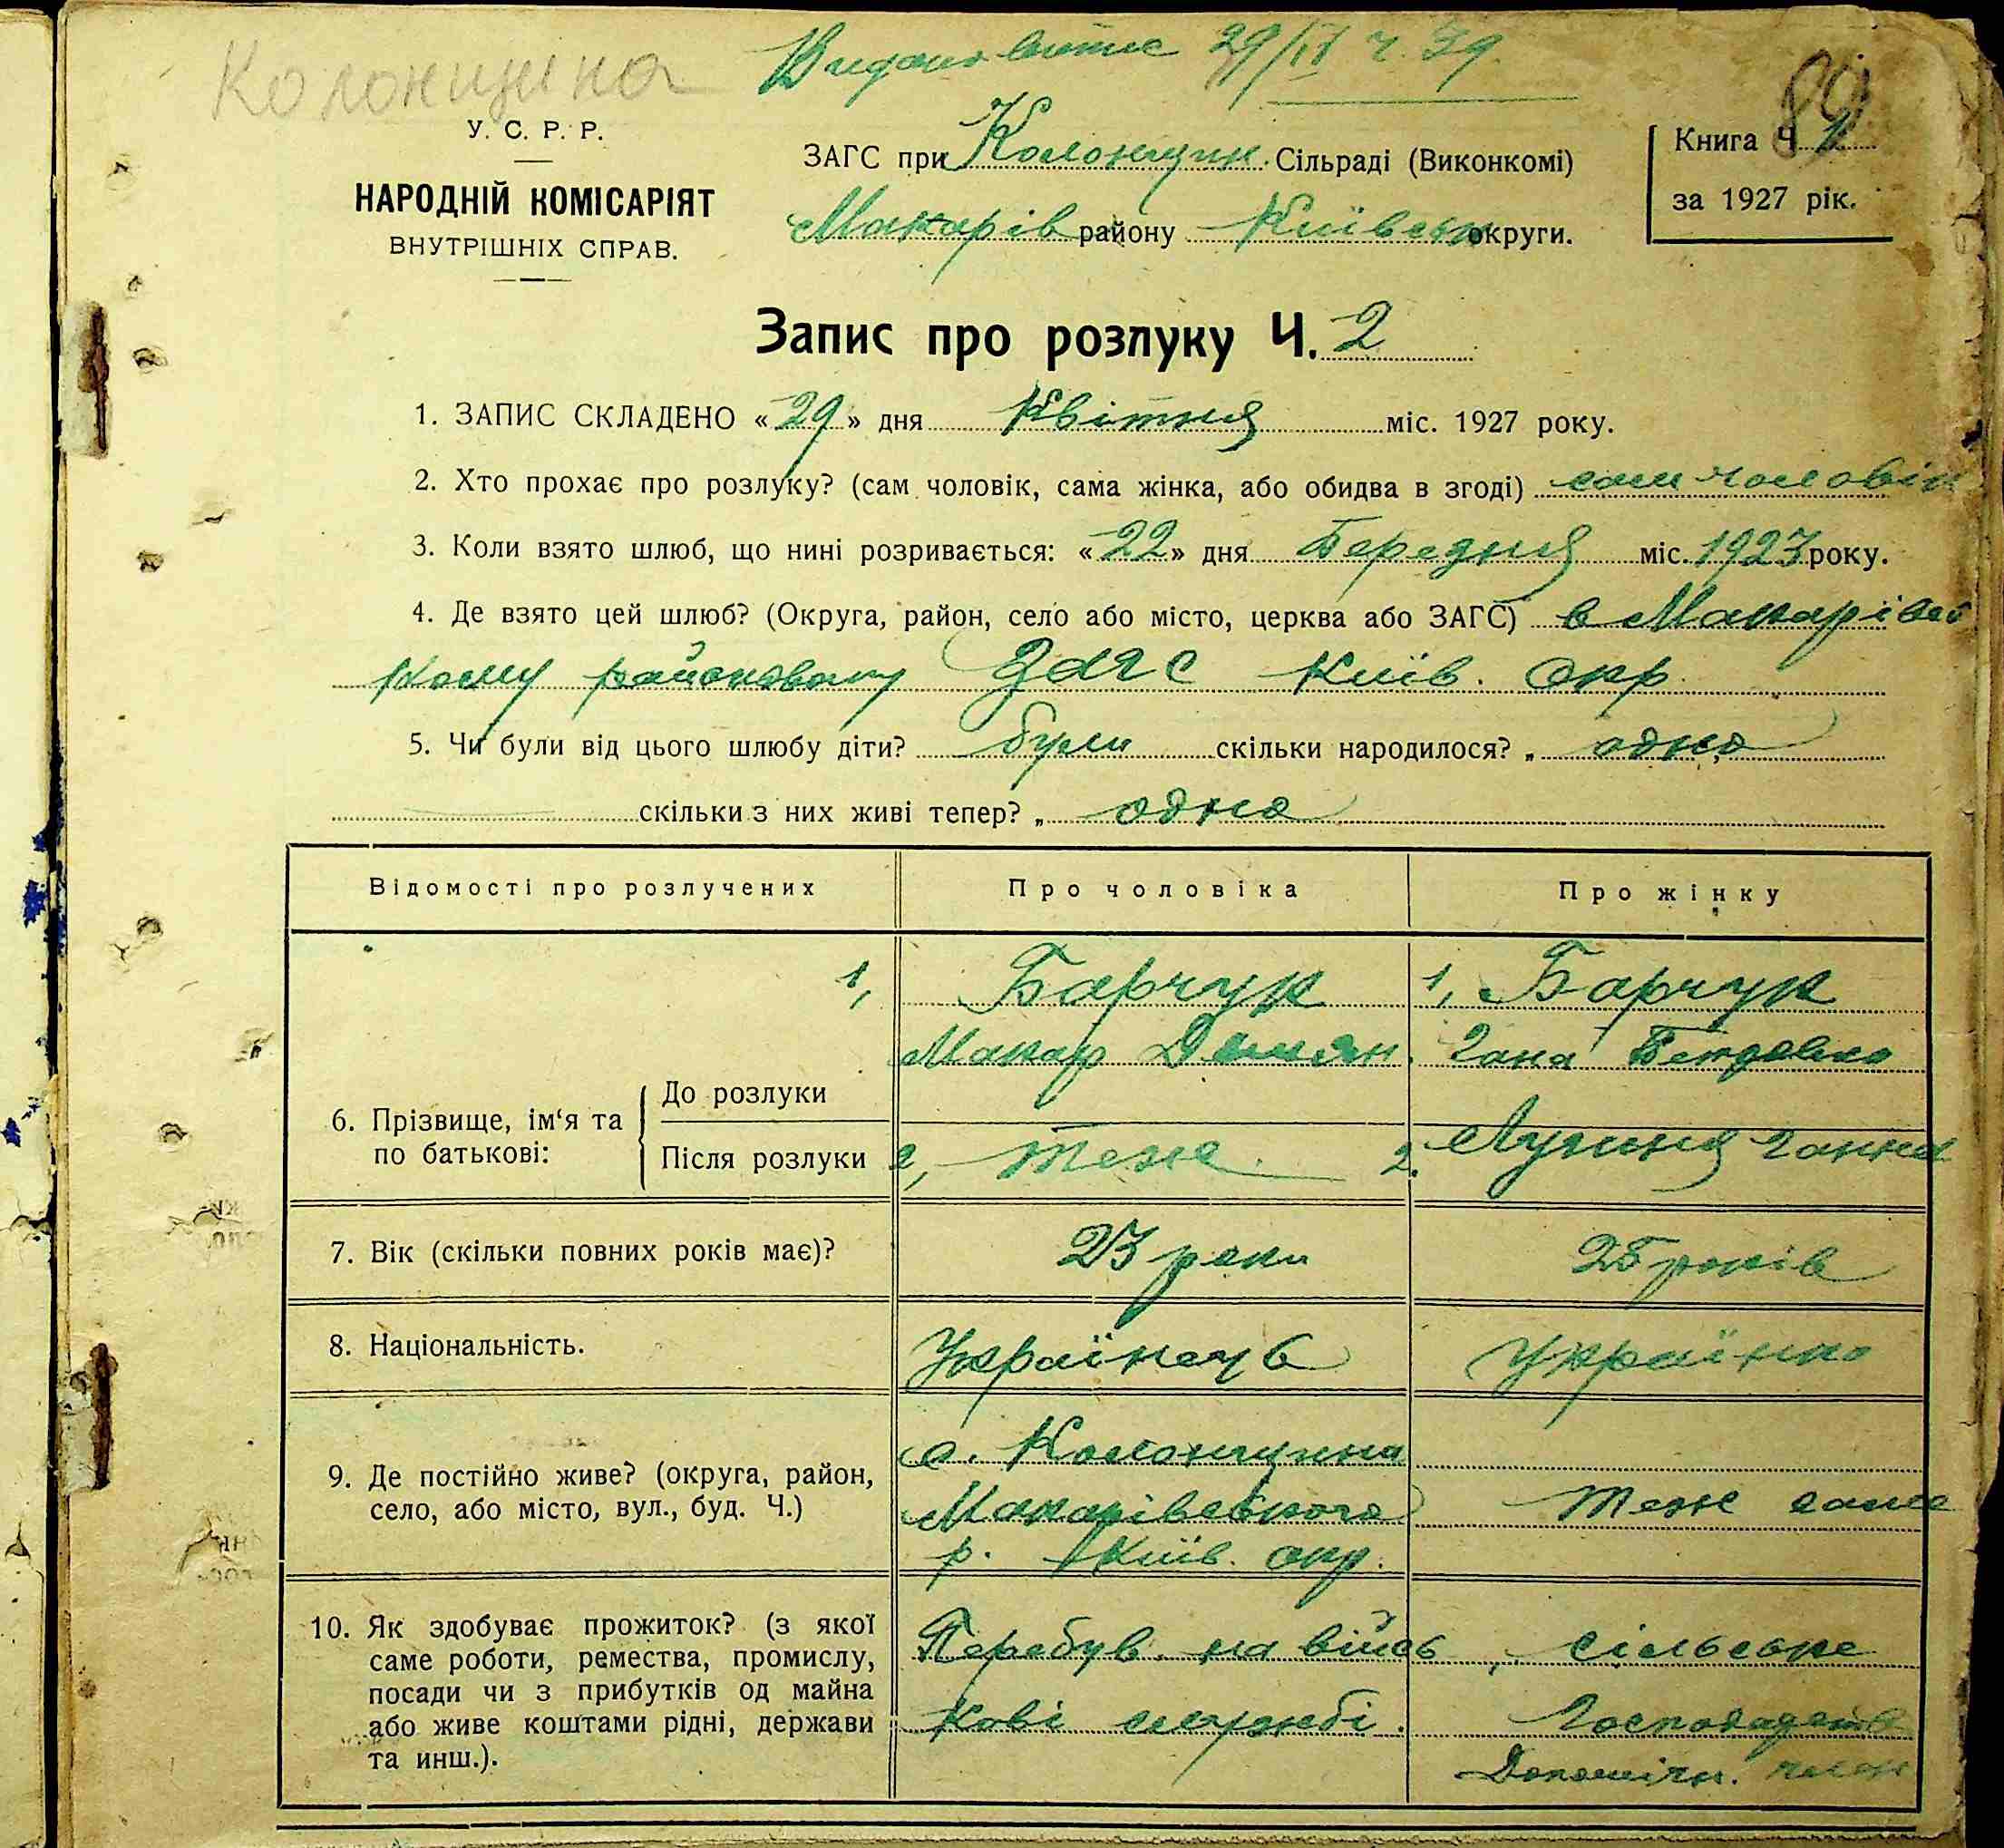 Колонщина
Видано витяг 29/IV Ч. 39.
89
У. С. Р. Р.
НАРОДНІЙ КОМІСАРІЯТ
ВНУТРІШНІХ СПРАВ.
ЗАГС при Колонщин. Сільраді (Виконкомі)
Макарів району Київськ округи.
Книга Ч 1
за 1927 рік.
Запис про розлуку Ч. 2
1. ЗАПИС СКЛАДЕНО «29» дня Квітня міс. 1927 року.
2. Хто прохає про розлуку? (сам чоловік, сама жінка, або обидва в згоді) сам чоловік
3. Коли взято шлюб, що нині розривається: «22» дня Березня міс. 1923 року.
4. Де взято цей шлюб? (Округа, район, село або місто, церква або ЗАГС) в Макарівсь
кому районовому ЗАГС Київ. окр.
5. Чи були від цього шлюбу діти? були скільки народилося? „ одно
скільки з них живі тепер? „ одно
Відомості про розлучених
Про чоловіка
Про жінку
6. Прізвище, ім‘я та по батькові:
До розлуки
Після розлуки
1, Барчук
Макар Демян.
2, Теж
1, Барчук
Гана
2. Ганна
7. Вік (скільки повних років має)?
23 роки
25 років
8. Національність.
Українець
Українка
9. Де постійно живе? (округа, район,
село, або місто, вул., буд. Ч.)
с. Колонщина
Макарівського
р. Київ. окр.
Теж саме
10. Як здобуває прожиток? (з якої
саме роботи, ремества, промислу,
посади чи з прибутків од майна
або живе коштами рідні, держави
та инш.).
Перебув. на військ
кові службі.
Сільське
Господарств
Допоміжн. член